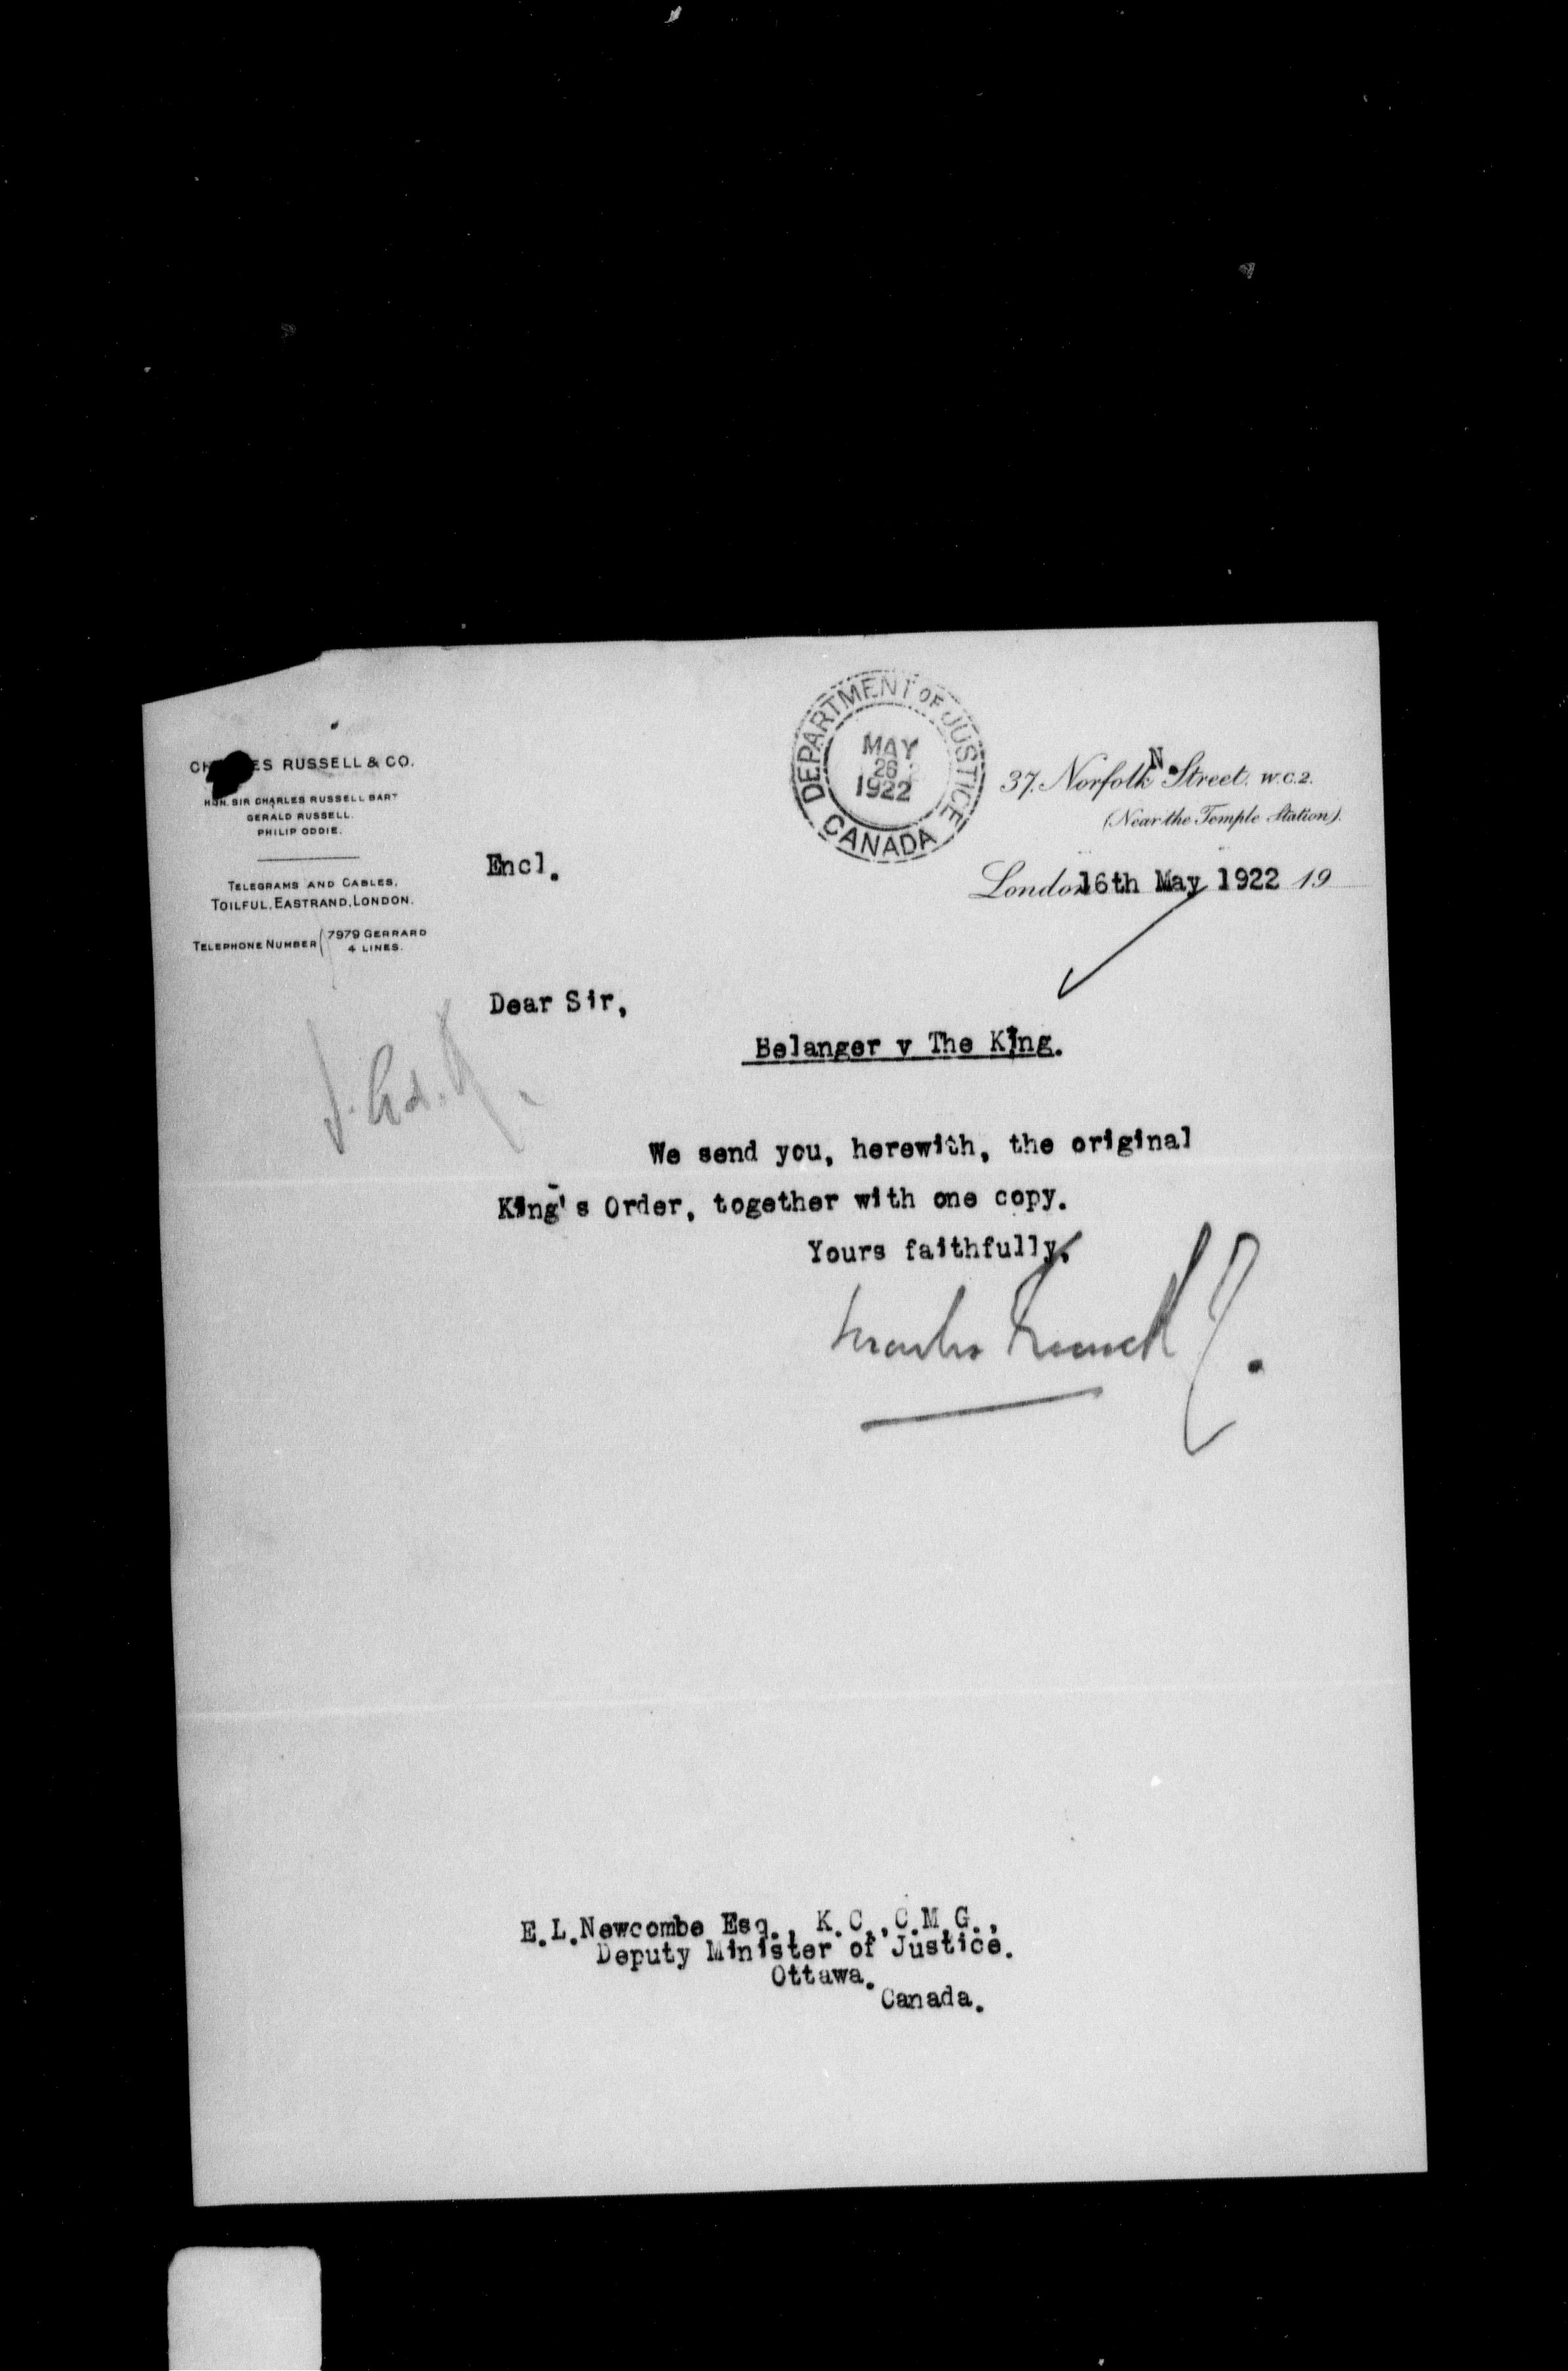 CHARLES RUSSELL & CO.
HON. SIR CHARLES RUSSELL BART
GERALD RUSSELL.
PHILIP ODDIE.
TELEGRAMS AND CABLES,
TOILFUL, EASTRAND, LONDON.
TELEPHONE NUMBER 7979 GERRARD
4 LINES.
DEPARTMENT OF JUSTICE
MAY
26
1922
CANADA
N.
37. Norfolk Street. W.C.2.
(Near the Temple Station).
Encl.
London 16th May 1922 19
Dear Sir,
Belanger v The King.
We send you, herewith, the original
King's Order, together with one copy.
Yours faithfully,
Charles Russell &
E.L.Newcombe Esq., K.C.,C.M.G.,
Deputy Minister of Justice.
Ottawa.
Canada.